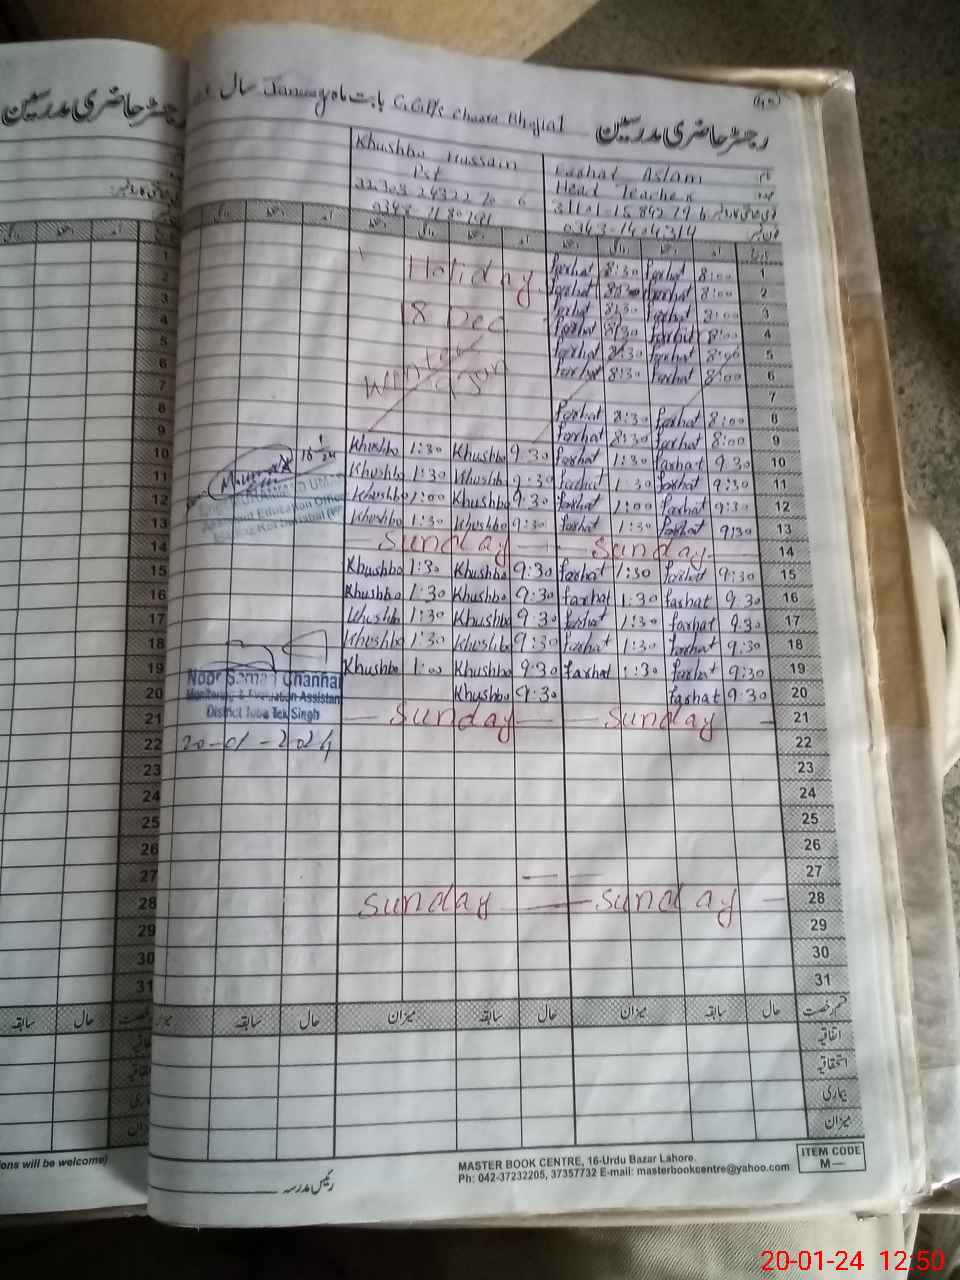 رجسٹر حاضری مدرسین
رجسٹر حاضری مدرسین بابت ماہ January سال
Khushbo Hussain Farhat Aslam نام
Pst Head Teacher عہدہ
0343-1404314 فون نمبر
آمد آمد تاریخ
Holiday farhat 8:30 farhat 8:00 1
farhat 8:30 farhat 8:00 2
18 Dec farhat 8:30 farhat 8:00 3
farhat 8:30 farhat 8:00 4
Winter farhat 8:30 farhat 8:00 5
9 Jan farhat 8:30 farhat 8:00 6
7
farhat 8:30 farhat 8:00 8
farhat 8:30 farhat 8:00 9
10 Khushbo 1:30 Khushbo 9:30 farhat 1:30 farhat 9:30 10
11 Khushbo 1:30 Khushbo 9:30 farhat 1:30 farhat 9:30 11
12 Khushbo 1:00 Khushbo 9:30 farhat 1:00 farhat 9:30 12
13 Khushbo 1:30 Khushbo 9:30 farhat 1:30 farhat 9:30 13
14 Sunday Sunday 14
15 Khushbo 1:30 Khushbo 9:30 farhat 1:30 farhat 9:30 15
16 Khushbo 1:30 Khushbo 9:30 farhat 1:30 farhat 9:30 16
17 Khushbo 1:30 Khushbo 9:30 farhat 1:30 farhat 9:30 17
18 Khushbo 1:30 Khushbo 9:30 farhat 1:30 farhat 9:30 18
19 Khushbo 1:00 Khushbo 9:30 farhat 1:30 farhat 9:30 19
20 Khushbo 9:30 farhat 9:30 20
21 Sunday Sunday 21
Noor Saman Channar
Monitoring & Evaluation Assistant
District Toba Tek Singh
20-01-2024
22 22
23 23
24 24
25 25
26 26
27 27
28 Sunday Sunday 28
29 29
30 30
31 31
سابقہ حال میزان سابقہ حال میزان سابقہ حال میزان سابقہ حال قسم رخصت
اتفاقیہ
استحقاقیہ
بیماری
میزان
ons will be welcome)
رئیس مدرسہ
MASTER BOOK CENTRE, 16-Urdu Bazar Lahore.
Ph: 042-37232205, 37357732 E-mail: masterbookcentre@yahoo.com
ITEM CODE
M—
20-01-24 12:50